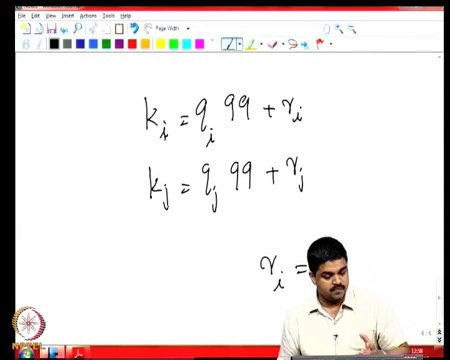 File Edit View Insert Actions Tools Help
Page Width
B
k_i = q_i 99 + r_i
k_j = q_j 99 + r_j
r_i =
NPTEL
12:58